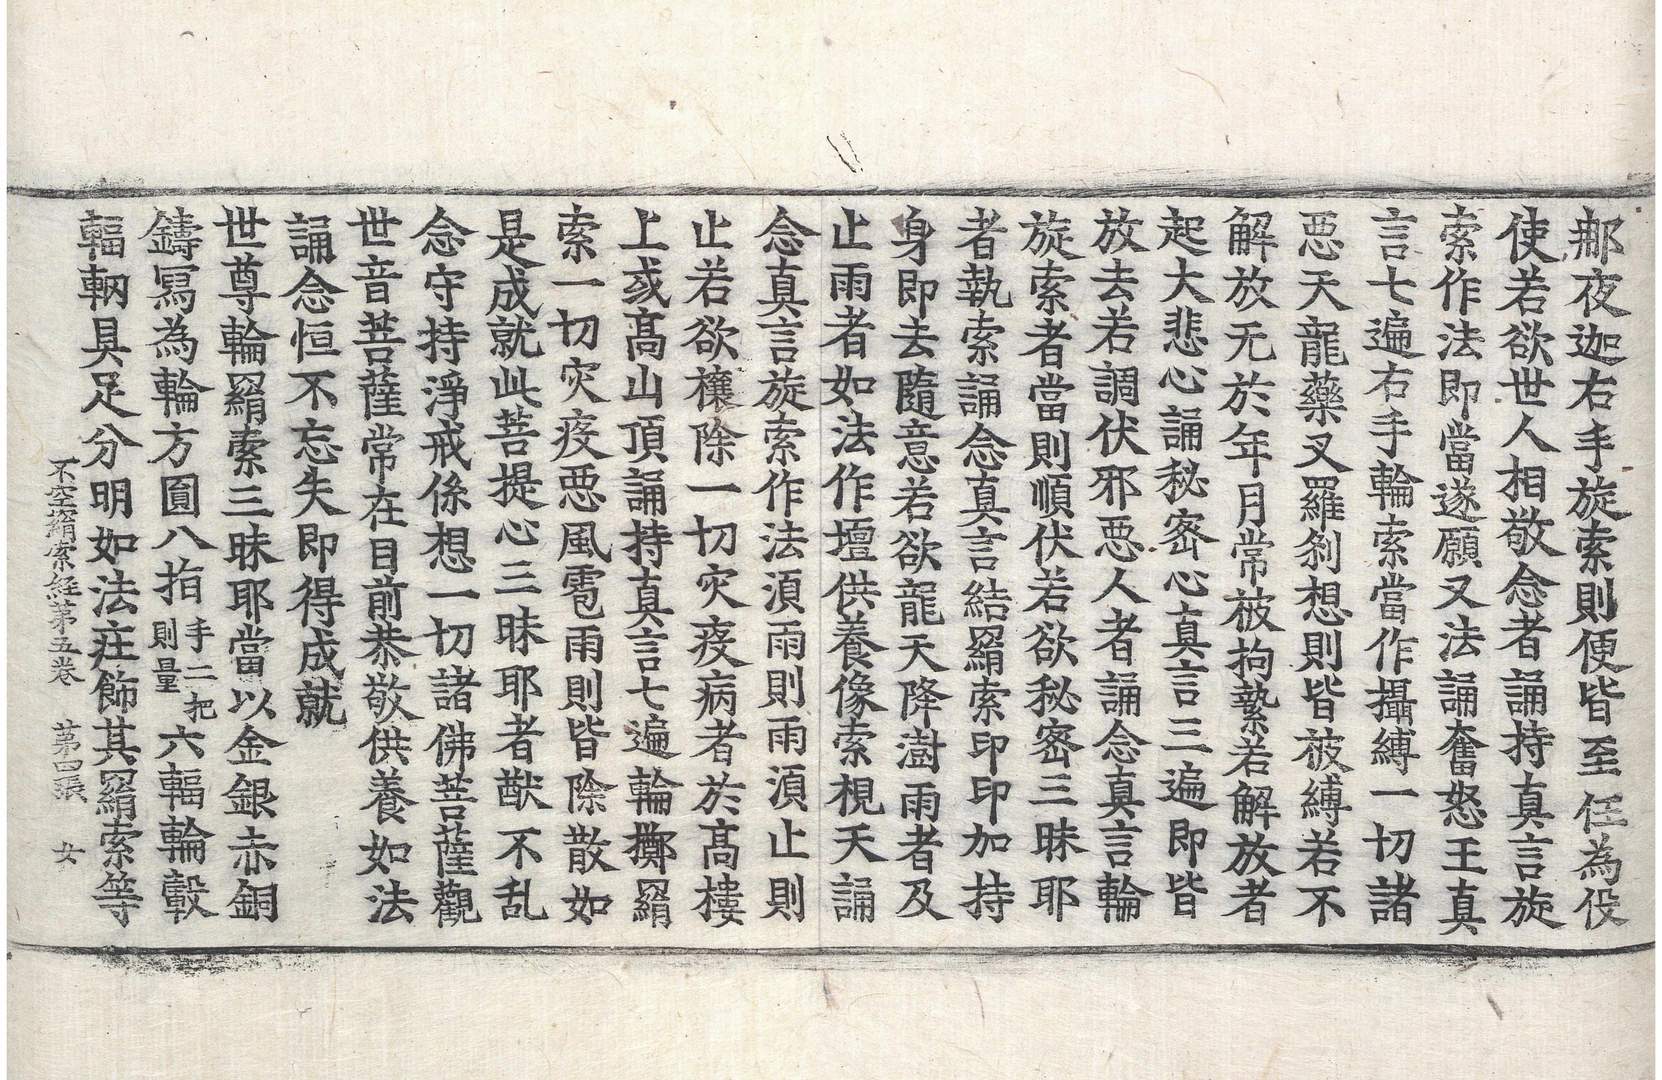 䣀夜迦右手旋索則便皆至任為伇
使若欲世人相敬念者誦持真言旋
索作法即當遂願又法誦奮怒王真
言七遍右手輪索當作攝縛一切諸
惡天龍藥叉羅剎想則皆被縛若不
解放无於年月常被拘縶若解放者
起大悲心誦秘密心真言三遍即皆
放去若調伏邪惡人者誦念真言輪
旋索者當則順伏若欲秘密三昧耶
者執索誦念真言結羂索印印加持
身即去隨意若欲龍天降澍雨者及
止雨者如法作壇供養像索視天誦
念真言旋索作法湏雨則雨湏止則
止若欲穰除一切灾疫病者於髙樓
上或髙山頂誦持真言七遍輪擲羂
索一切灾疫惡風雹雨則皆除散如
是成就此菩提心三昧耶者猷不乱
念守持淨戒係想一切諸佛菩薩觀
世音菩薩常在目前恭敬供養如法
誦念恒不忘失即得成就
世尊輪羂索三昧耶當以金銀赤銅
鑄冩為輪方圓八指手二把則量六輻輪轂
輻輞具足分明如法庄飾其羂索等
不空羂索経第五卷 第四張 女